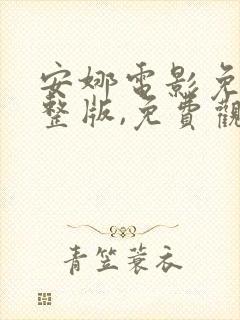 安娜電影免
整版,免費觀
青笠蓑衣